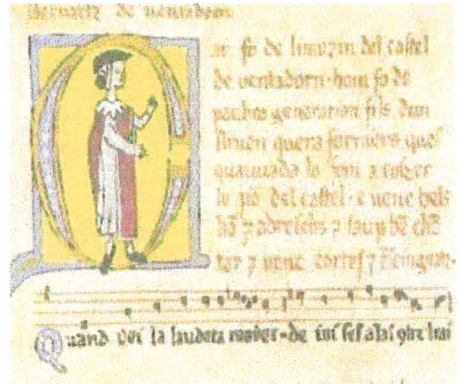 Bernartz de uentadorn
fo de limozin del castel
de uentadorn· hom fo de
paubra generation fils dun
quera forniers ques
lo forn a cozer
lo pan del castel· e uenc bels
hō ⁊ adreichs ⁊ saup bē chā
tar ⁊ uenc cortes ⁊
Quand vei la laudeta mover·de ioi ses alas rai